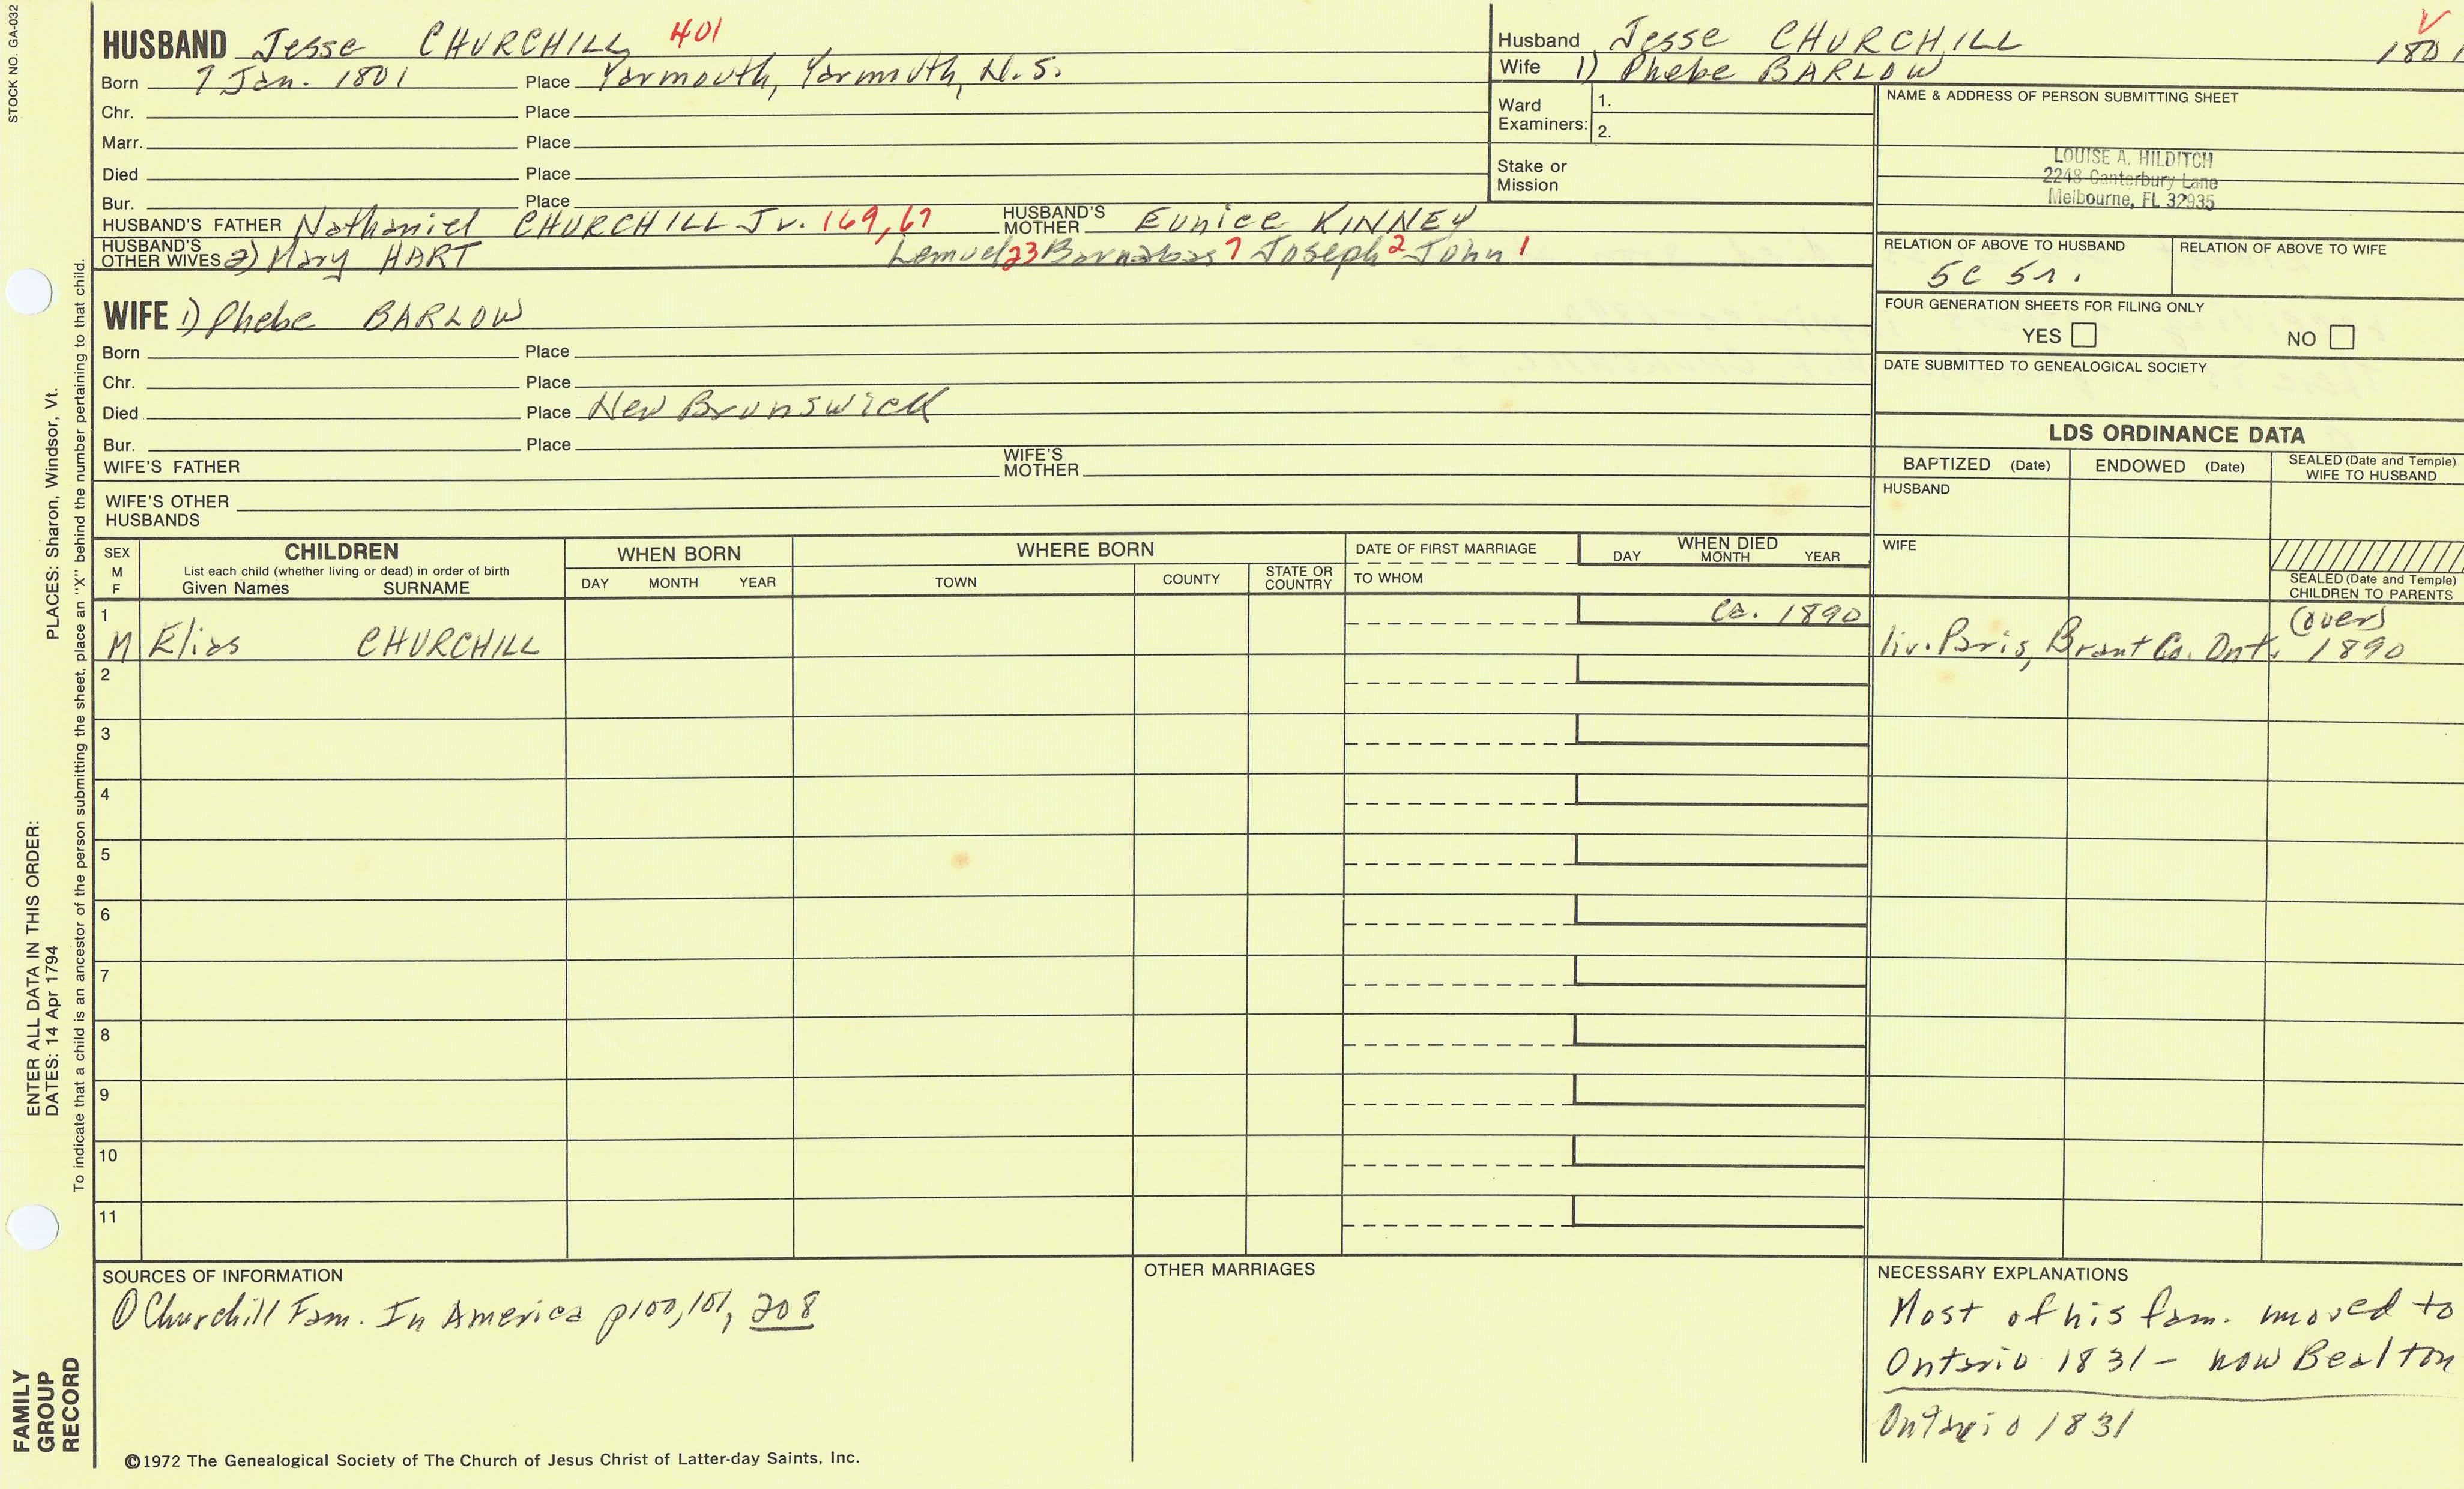 STOCK NO. GA-032
HUSBAND Jesse CHURCHILL 401
Born 7 Jan. 1801 Place Yarmouth, Yarmouth, N.S.
Chr. Place
Marr. Place
Died Place
Bur. Place
HUSBAND'S FATHER Nathaniel CHURCHILL Jr. 169, 67 HUSBAND'S MOTHER Eunice KINNEY
HUSBAND'S OTHER WIVES 2) Mary HART Lemuel 23 Barnabas 7 Joseph 2 John 1
WIFE 1) Phebe BARLOW
Born Place
Chr. Place
Died Place New Brunswick
Bur. Place
WIFE'S FATHER WIFE'S MOTHER
WIFE'S OTHER HUSBANDS
Husband Jesse CHURCHILL 1801
Wife 1) Phebe BARLOW
Ward Examiners: 1.
2.
Stake or Mission
NAME & ADDRESS OF PERSON SUBMITTING SHEET
LOUISE A. HILDITCH
2248 Canterbury Lane
Melbourne, FL 32935
RELATION OF ABOVE TO HUSBAND RELATION OF ABOVE TO WIFE
5C 5r.
FOUR GENERATION SHEETS FOR FILING ONLY
YES NO
DATE SUBMITTED TO GENEALOGICAL SOCIETY
LDS ORDINANCE DATA
BAPTIZED (Date) ENDOWED (Date) SEALED (Date and Temple) WIFE TO HUSBAND
HUSBAND
WIFE
SEALED (Date and Temple) CHILDREN TO PARENTS
SEX M F
CHILDREN
List each child (whether living or dead) in order of birth
Given Names SURNAME
WHEN BORN
DAY MONTH YEAR
WHERE BORN
TOWN COUNTY STATE OR COUNTRY
DATE OF FIRST MARRIAGE
TO WHOM
WHEN DIED
DAY MONTH YEAR
1 ca. 1890 (over)
M Elias CHURCHILL liv. Paris, Brant Co. Ont. 1890
2
3
4
5
6
7
8
9
10
11
SOURCES OF INFORMATION
① Churchill Fam. In America p100,101, 208
OTHER MARRIAGES
NECESSARY EXPLANATIONS
Most of his fam. moved to
Ontario 1831 - now Bealton
Ontario 1831
©1972 The Genealogical Society of The Church of Jesus Christ of Latter-day Saints, Inc.
FAMILY
GROUP
RECORD
ENTER ALL DATA IN THIS ORDER:
DATES: 14 Apr 1794 PLACES: Sharon, Windsor, Vt.
To indicate that a child is an ancestor of the person submitting the sheet, place an "X" behind the number pertaining to that child.